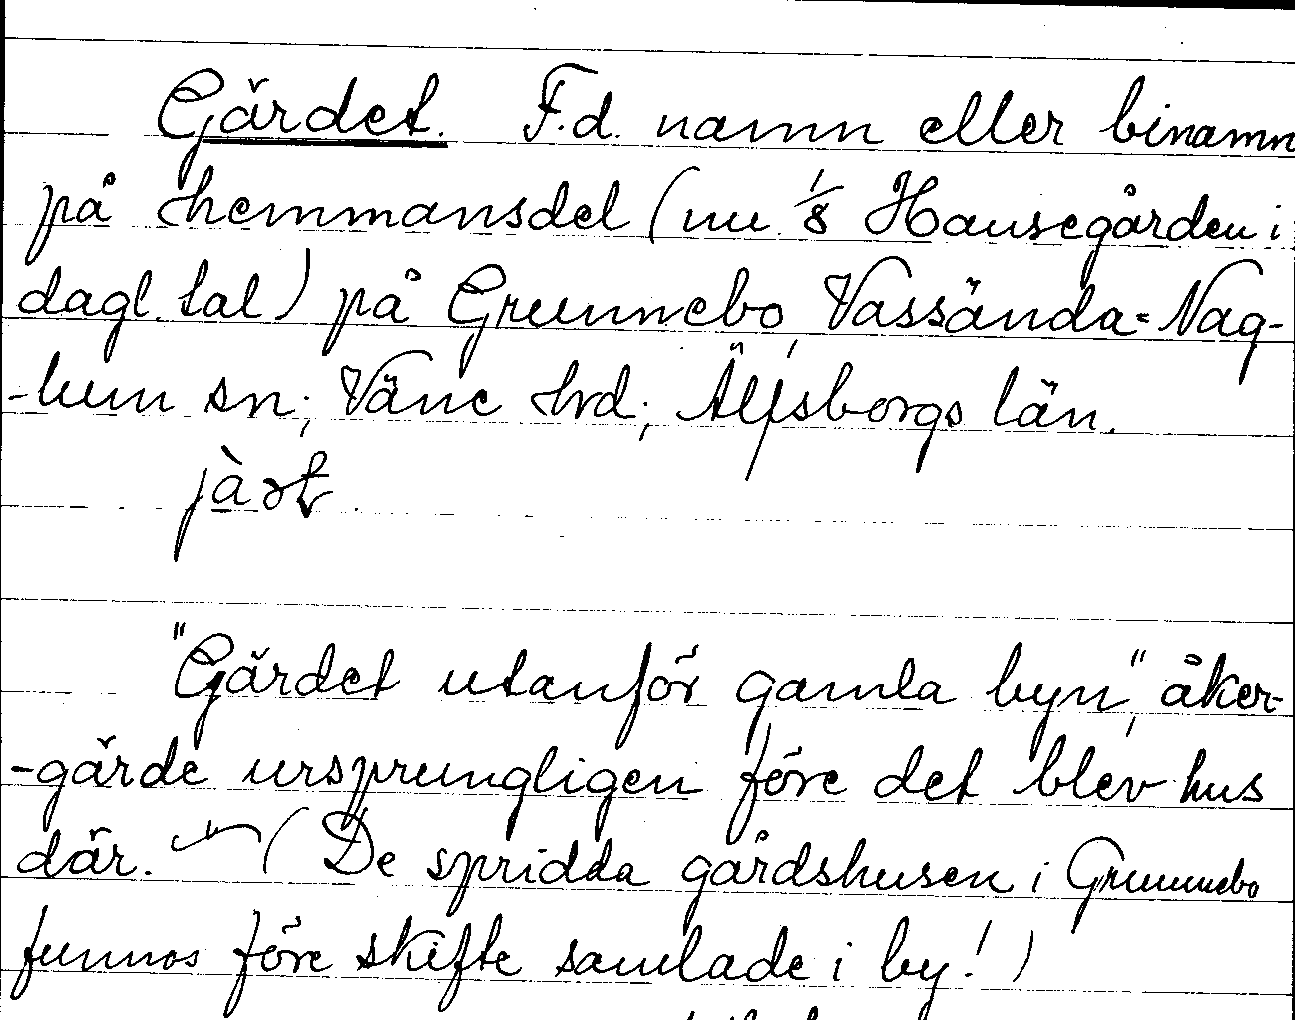 Gärdet. F.d. namn eller binamn
på hemmansdel (nu 1/8 Hansegården i
dagl. tal) på Grunnebo, Vassända-Nag-
-lum sn; Väne hrd; Älfsborgs län.
"Gärdet utanför gamla byn", åker-
-gärde ursprungligen före det blev hus
där. (De spridda gårdshusen i Grunnebo
funnos före skifte samlade i by!)